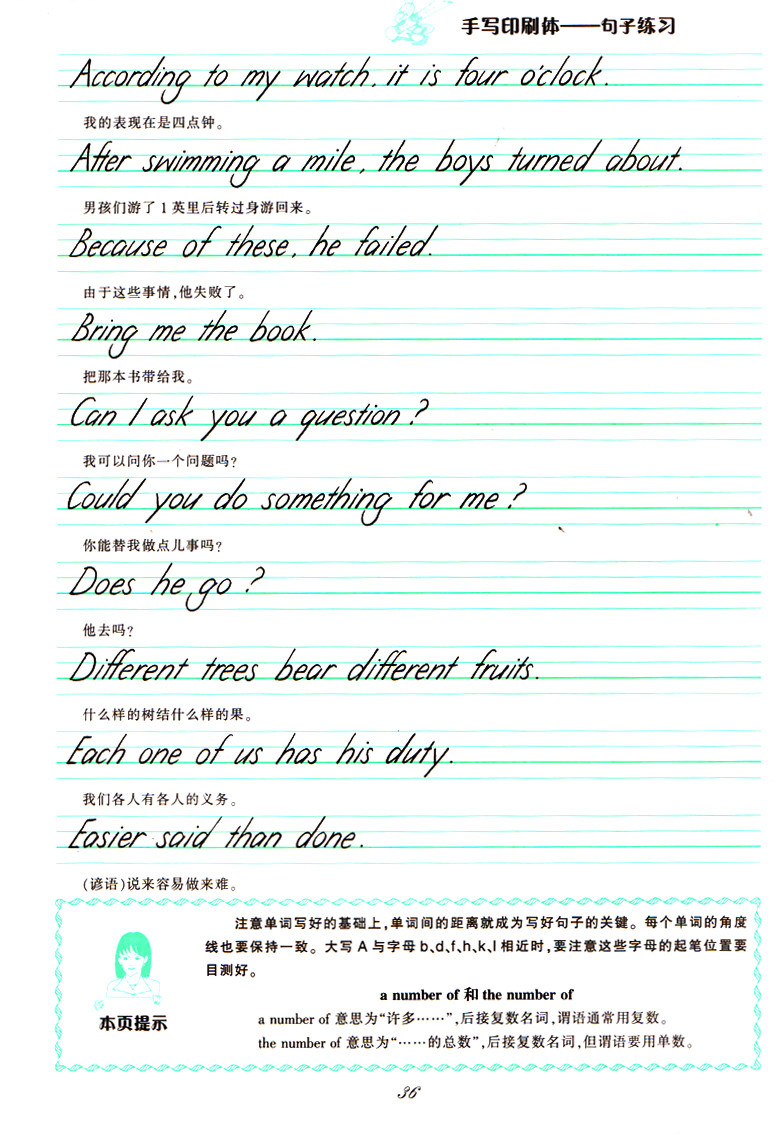 手写印刷体——句子练习
According to my watch, it is four o'clock.
我的表现在是四点钟。
After swimming a mile, the boys turned about.
男孩们游了1英里后转过身游回来。
Because of these, he failed.
由于这些事情,他失败了。
Bring me the book.
把那本书带给我。
Can I ask you a question?
我可以问你一个问题吗?
Could you do something for me?
你能替我做点儿事吗?
Does he go?
他去吗?
Different trees bear different fruits.
什么样的树结什么样的果。
Each one of us has his duty.
我们各人有各人的义务。
Easier said than done.
(谚语)说来容易做来难。
注意单词写好的基础上,单词间的距离就成为写好句子的关键。每个单词的角度
线也要保持一致。大写A与字母b、d、f、h、k、l相近时,要注意这些字母的起笔位置要
目测好。
a number of 和 the number of
a number of 意思为“许多……”,后接复数名词,谓语通常用复数。
the number of 意思为“……的总数”,后接复数名词,但谓语要用单数。
本页提示
36